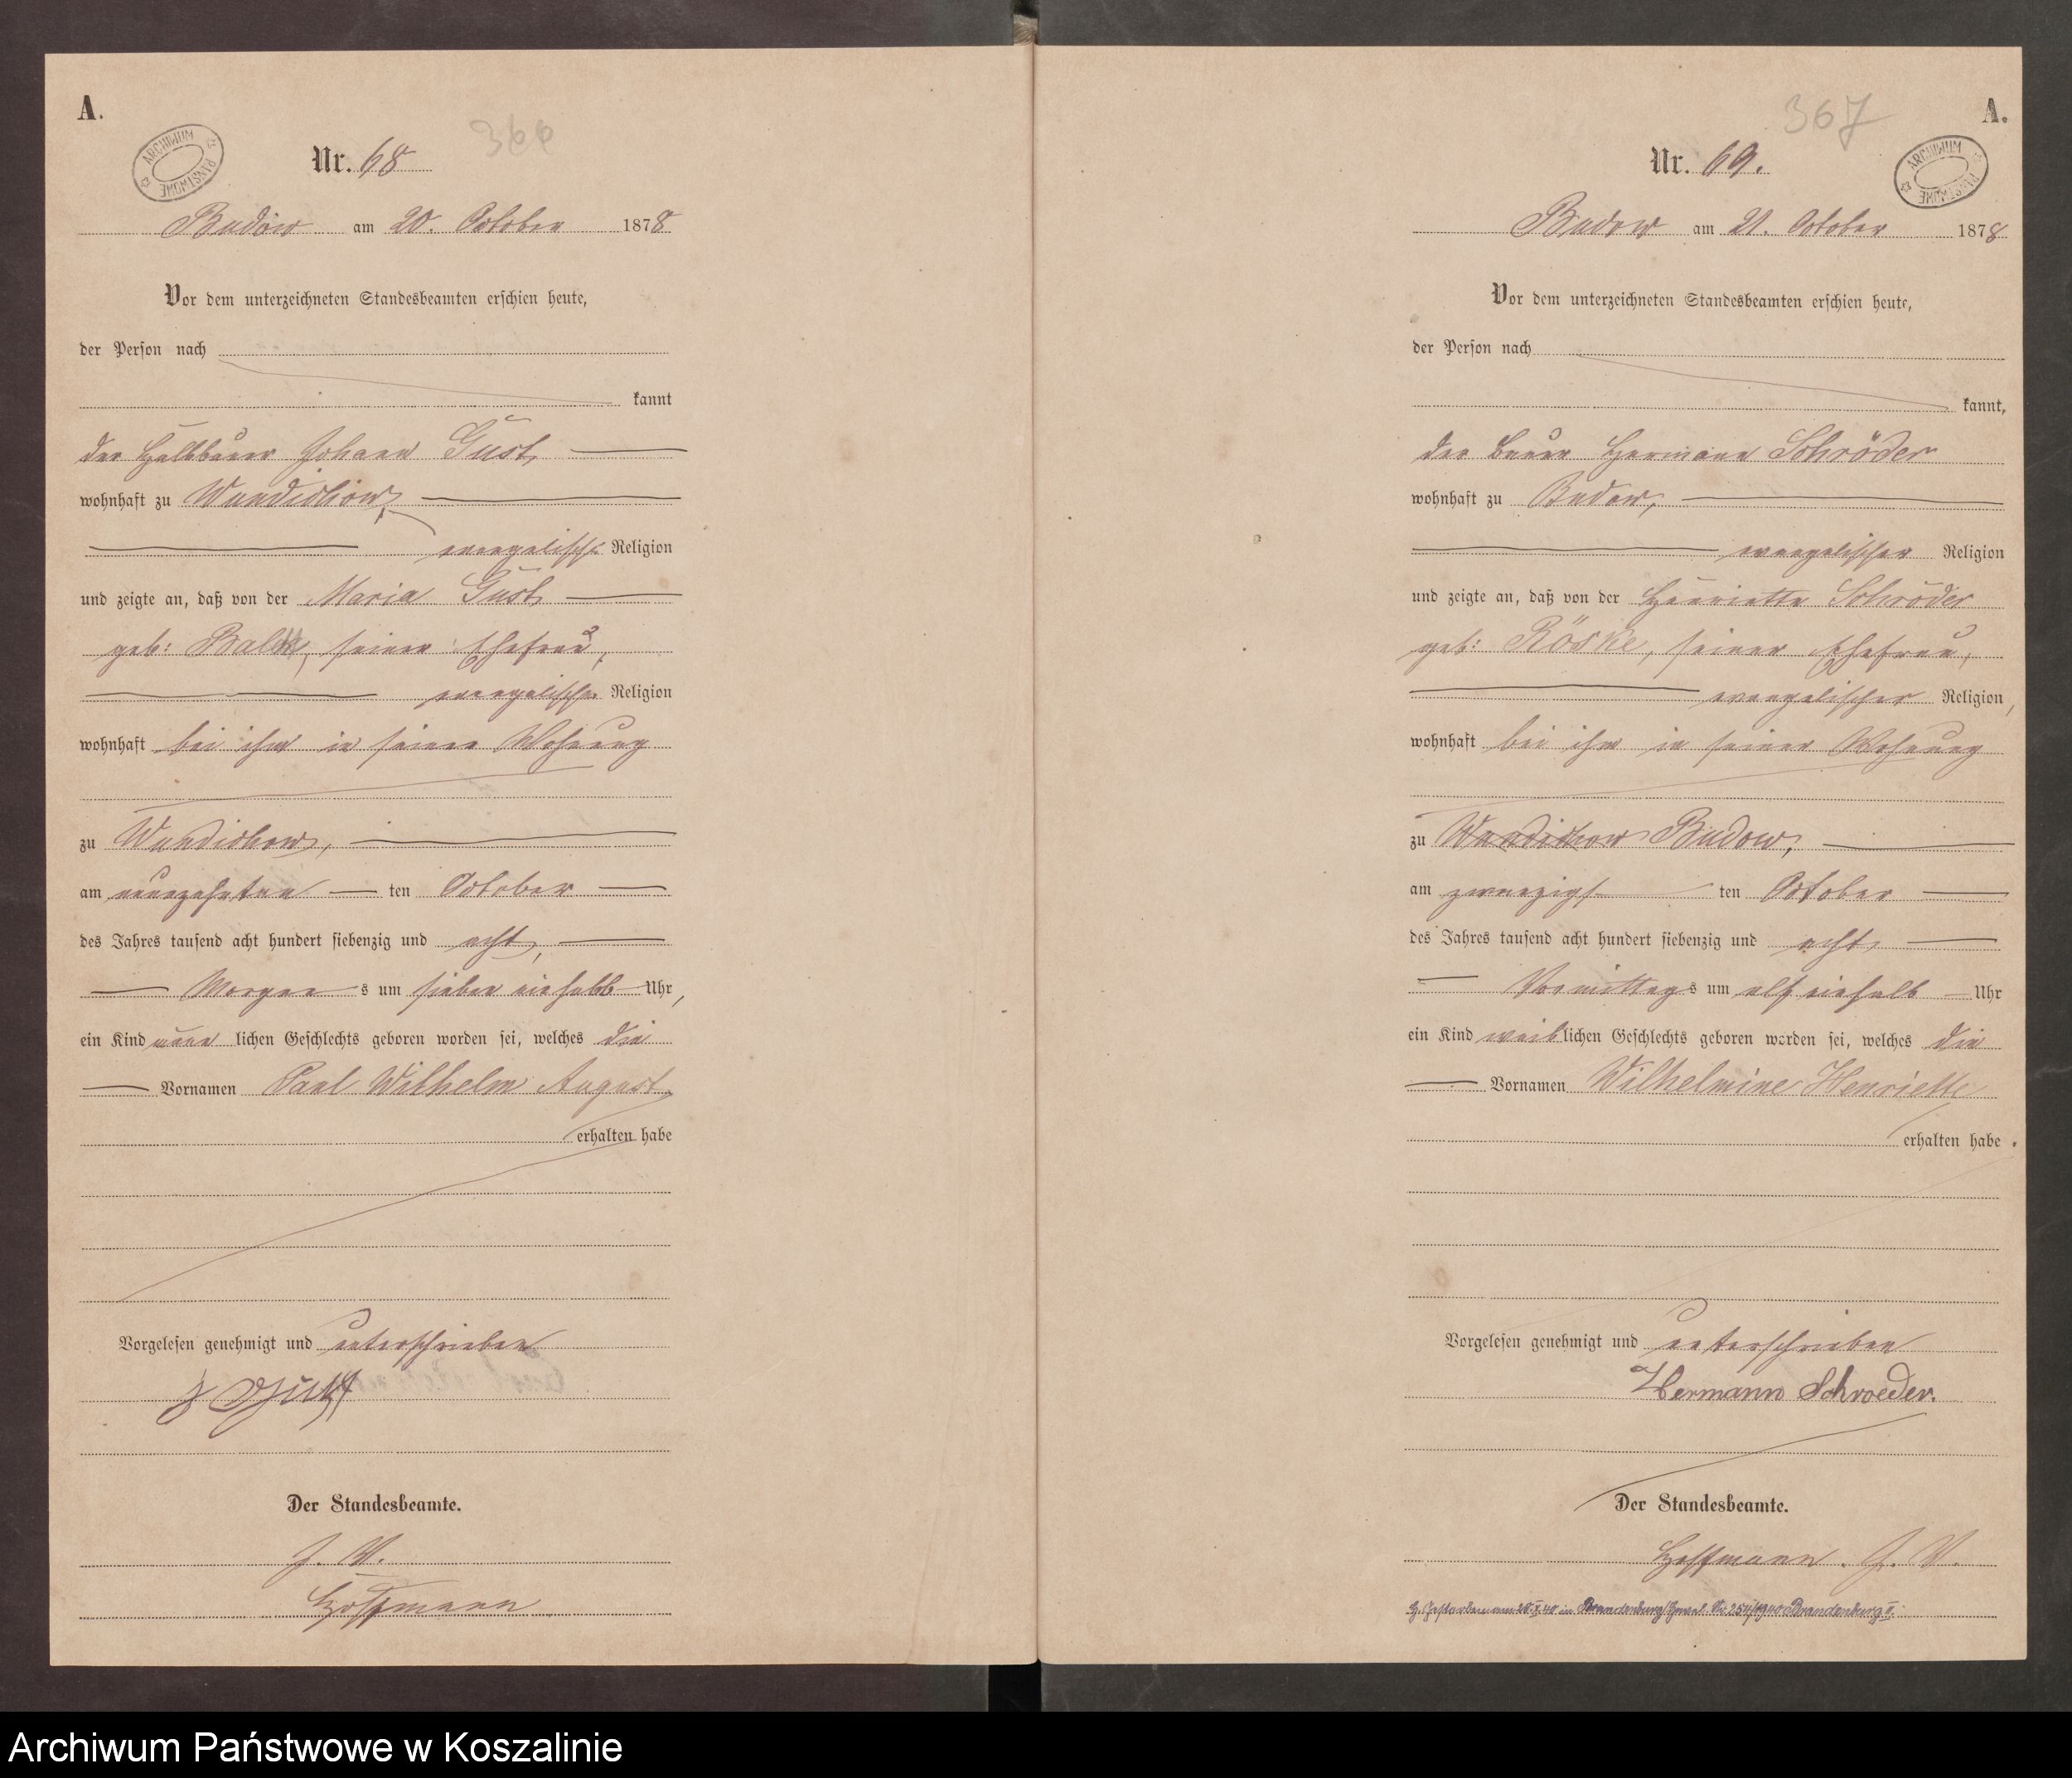 A.
ARCHIWUM PAŃSTWOWE
366
Nr. 68
Budow am 20. October 1878
Vor dem unterzeichneten Standesbeamten erschien heute,
der Person nach
kannt
der Halbbauer Johann Gust,
wohnhaft zu Wundichow,
evangelischer Religion
und zeigte an, daß von der Maria Gust
geb: seiner Ehefrau,
evangelischer Religion
wohnhaft bei ihm in seiner Wohnung
zu Wundichow,
am neunzehnten ten October
des Jahres tausend acht hundert siebenzig und acht,
Morgens um sieben einhalb Uhr,
ein Kind männlichen Geschlechts geboren worden sei, welches die
Vornamen Paul Wilhelm August
erhalten habe
Vorgelesen genehmigt und unterschrieben
J Gust
Der Standesbeamte.
J. V.
Hoffmann
A.
ARCHIWUM PAŃSTWOWE
367
Nr. 69.
Budow am 21. October 1878
Vor dem unterzeichneten Standesbeamten erschien heute,
der Person nach
kannt,
der Bauer Hermann Schröder
wohnhaft zu Budow,
evangelischer Religion
und zeigte an, daß von der Henriette Schröder
geb: Röske, seiner Ehefrau,
evangelischer Religion,
wohnhaft bei ihm in seiner Wohnung
zu Wundichow Budow,
am zwanzigsten October
des Jahres tausend acht hundert siebenzig und acht,
Vormittags um elf einhalb Uhr
ein Kind weiblichen Geschlechts geboren worden sei, welches die
Vornamen Wilhelmine Henriette
erhalten habe.
Vorgelesen genehmigt und unterschrieben
Hermann Schroeder.
Der Standesbeamte.
Hoffmann. J. V.
Gestorben am in Brandenburg Brandenburg II.
Archiwum Państwowe w Koszalinie